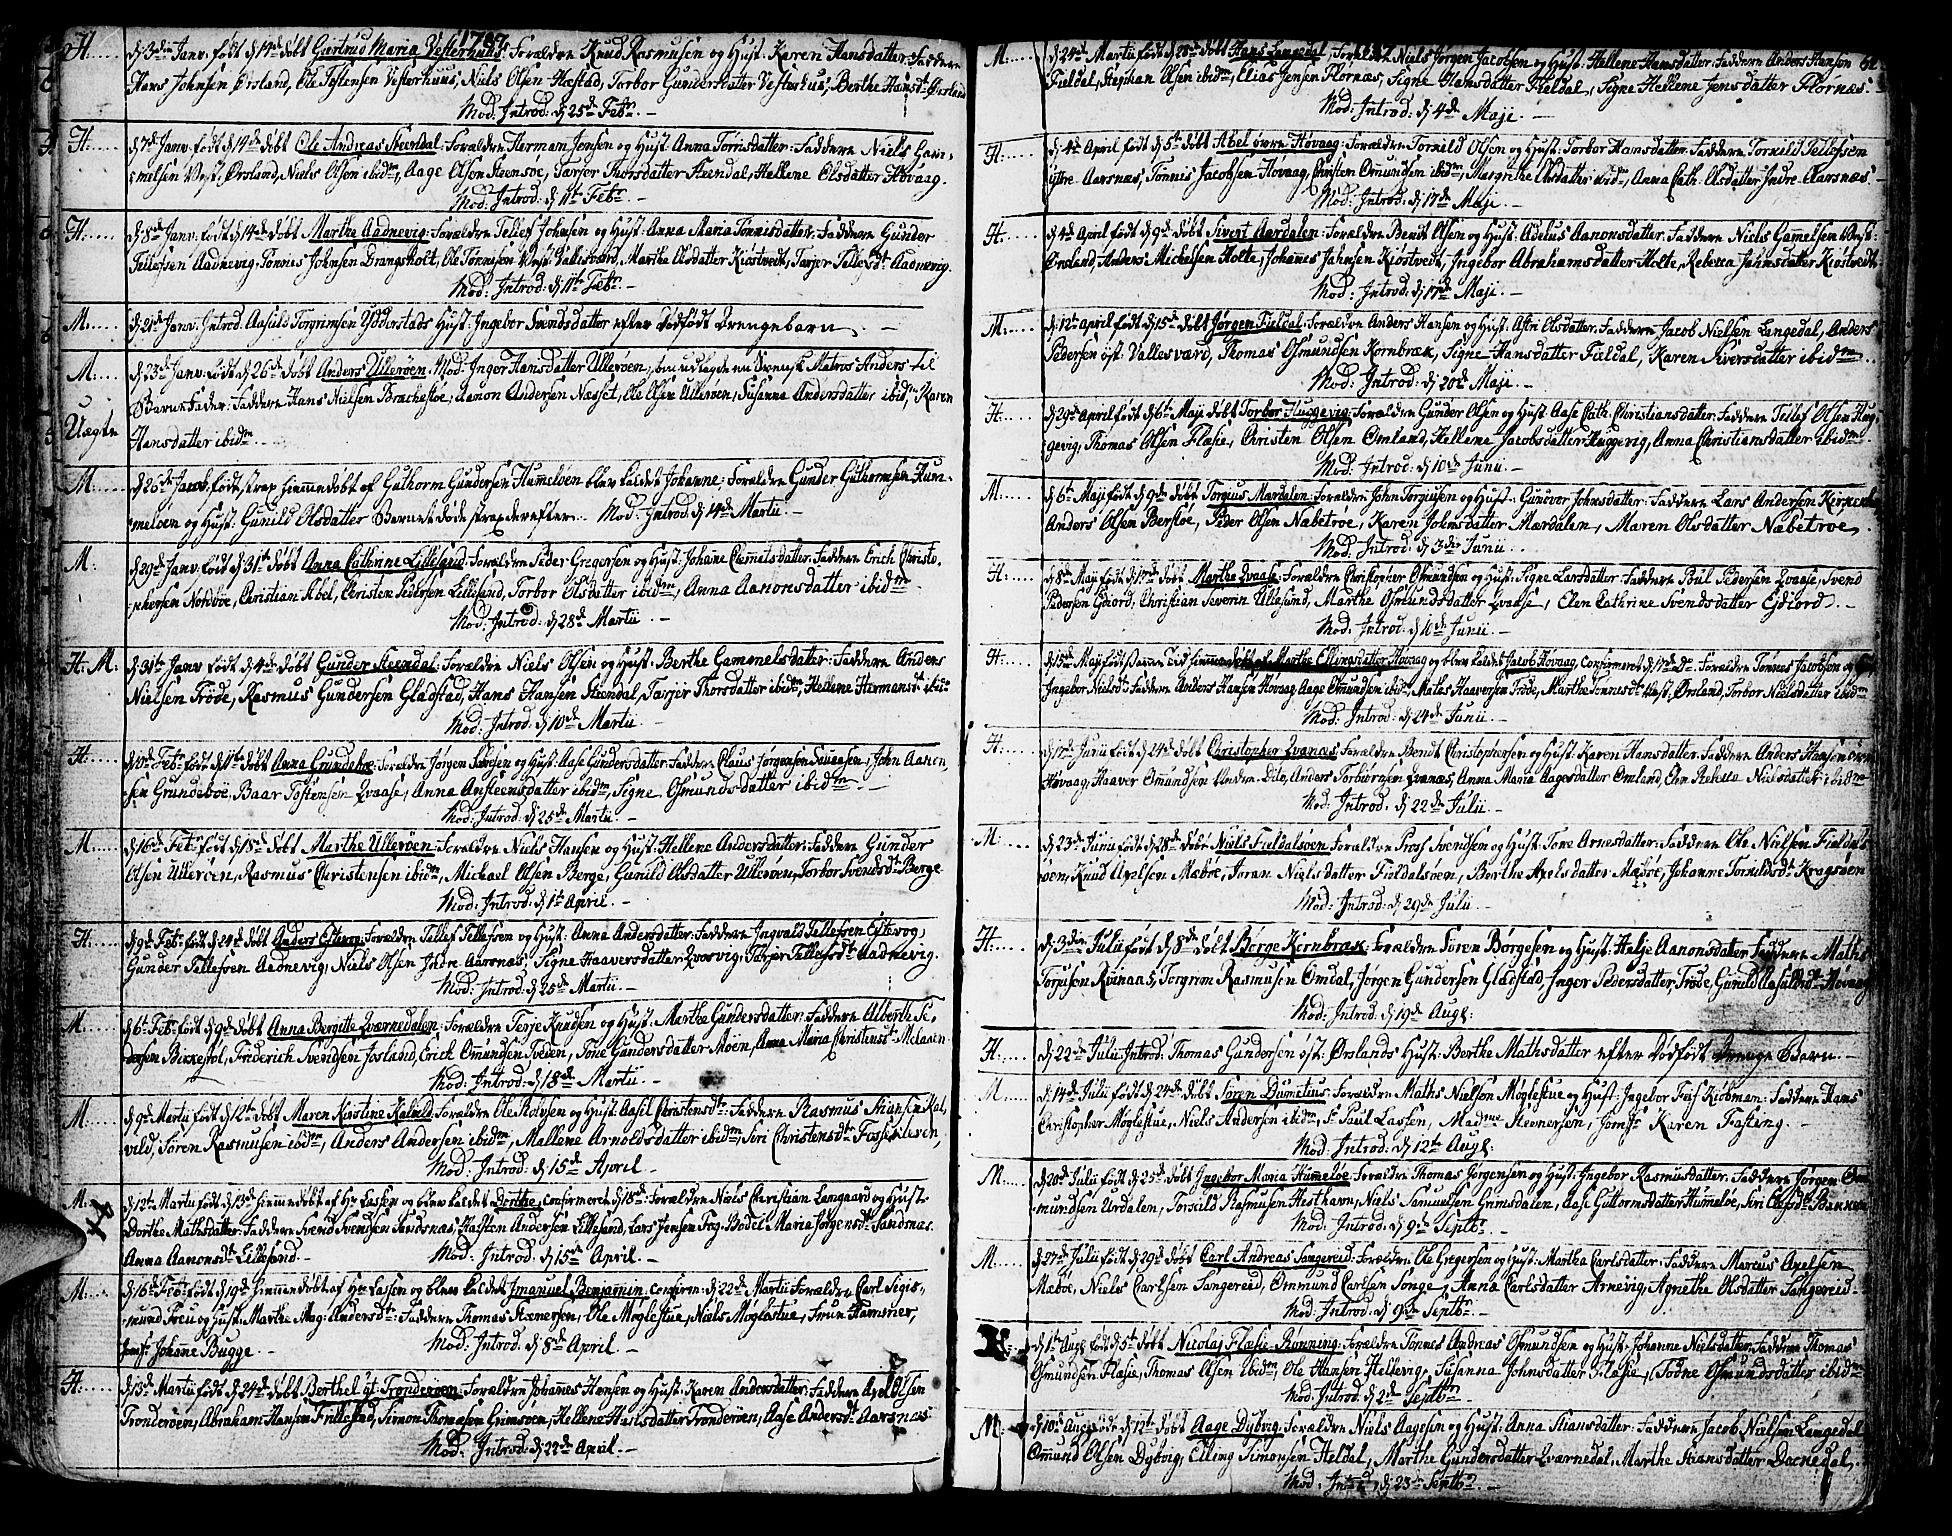 1787.
H. d 3die Janv. født d 14de døbt Giertrud Maria Vesterhuus: Forældre Knud Rasmusen og Hust: Karen Hansdatter: Faddere
Hans Johnsen Ørsland, Ole Tostensen Vesterhuus, Niels Olsen Hæstad, Torbor Gundersdatter Vesterhuus, Berthe Hansdt Ørsland
Mod: Introd: d 25de Febr. –
H. d 7de Janv. født d 14de døbt Ole Andreas Steendal: Forældre Herman Jensen og Hust: Anna Tørrisdatter: Faddere Niels Gam-
melsen Vest: Ørsland, Niels Olsen ibidm, Aage Olsen Steensøe, Tarjer Thorsdatter Steendal, Hellene Olsdatter Høvaag.
Mod: Introd: d 11te Febr. –
H. d 8de Janv. født d 14de døbt Marthe Aadnevig: Forældre Tellef Johnsen og Hust: Anna Maria Tønnisdatter: Faddere Gunder
Tellefsen Aadnevig, Tønnes Johnsen Drangsholt, Ole Tønnesen Vest: Vallesværd, Marthe Olsdatter Kiøstvedt, Tarjer Tellefsdt Aadnevig.
Mod: Introd: d 11te Febr. –
M. d 21de Janv. Introd: Aasuls Torgrimsen Ydderstads Hust: Ingebor Svendsdatter efter Dødfødt Drengebarn –
M. d 23de Janv. født d 26de døbt Anders Ulleröen, Mod: Inger Hansdatter Ulleröen, som udlagde en Svensk Matros Anders til
Uægte Barne Fader: Faddere Hans Nielsen Brækkestøe, Aanon Andersen Næsset, Ole Olsen Ulleröen, Susanna Andersdatter ibid, Karen
Hansdatter ibidm.
M. d 26de Janv: født strax hiemmedøbt af Guthorm Gundersen Hummeløen blev kaldet Johanne: Forældre Gunder Guthormsen Hum-
meløen og Hust: Gunild Olsdatter Barnet døde strax derefter. Mod: Introd: d 14de Martii. –
M. d 29de Janv. født d 31te døbt Anna Cathrine Lillesand: Forældre Peder Gregersen og Hust: Johane Clemmetsdatter: Faddere Erich Christo-
phersen Nordbøe, Christian Abel, Christen Pedersen Lillesand, Torbor Olsdatter ibidm, Anna Aanonsdatter ibidm
Mod: Introd: d 28de Martii. –
H. M. d 31te Janv født d 4de døbt Gunder Steendal: Forældre Niels Olsen og Hust: Berthe Gammelsdatter: Faddere Anders
Nielsen Trøde, Rasmus Gundersen Gladstad, Hans Hansen Steendal, Tarjer Thorsdatter ibidm, Hellene Hermansdt ibidm
Mod: Introd: d 10de Martii. –
H. d 10de Febr. født d 11te døbt Anna Grundebøe: Forældre Jørgen Tarjesen og Hust: Aase Gundersdatter: Faddere Claus Jørgensen, John Aanon-
sen Grundebøe, Baar Tostensen Qvaase, Anna Ansteensdatter ibidm, Signe Osmundsdatter ibidm –
Mod: Introd: d 25de Martii –
M. d 16de Febr. født d 18de døbt Marthe Ulleröen: Forældre Niels Hansen og Hust: Hellene Andersdatter: Faddere Gunder
Olsen Ulleröen, Rasmus Christensen ibidm, Michael Olsen Berge, Gunild Olsdatter Ulleröen, Torbor Svendsdt Berge.
Mod: Introd: d 1te April. –
H. d 9de Febr. født d 24de døbt Anders Estevog: Forældre Tellef Tellefsen og Hust: Anna Andersdatter: Faddere Ingvald Tellefsen Estevog,
Gunder Tellefsen Aadnevig, Niels Olsen Indre Aarsnæs, Signe Haaversdatter Qvasvig, Tarjer Tellefsdt Aadnevig.
Mod: Introd: d 25de Martii. –
M. d 6te Febr. født d 9de døbt Anna Bergitte Qværnedalen: Forældre Terje Knudsen og Hust: Marthe Gundersdatter: Faddere Albert Pe-
dersen Birkesøl, Friderich Svendsen Josland, Erich Omundsen Tveden, Tone Gundersdatter Moen, Anna Maria Christensdt
Mod: Introd: d 18de Martii –
M. d 9de Martii født d 12te døbt Maren Kirstine Kalvild: Forældre Ole Rolvsen og Hust: Aasil Christensdt: Faddere Rasmus Stiansen Kal-
vild, Søren Rasmusen ibidm, Anders Andersen ibidm, Mallene Arnoldsdatter ibidm, Siri Christensdt Fossekleven,
Mod: Introd: d 15de April –
M. d 12te Martii født d 13de hiemmedøbt af Hr Lassen og blev kaldet Dorthe, confirmeret d 18de: Forældre Niels Christian Langaard og Hust:
Dorthe Mathsdatter: Faddere Svend Svendsen Sandsnæs, Hasten Andersen Lillesand, Lars Jensen Trog, Bodel Maria Jørgensdt Sandsnæs.
Anna Aanonsdt Lillesand. – Mod: Introd: d 15de April –
M. d 16de Febr. født d 19de hiemmedøbt af Hr Lassen og blev kaldet Imanuel Benjamin, confirm: d 22de Martii Forældre Carl Sigis-
mund Freu og Hust: Marthe Mag: Andersdt: Faddere Thomas Stenersen, Ole Møglestue, Niels Møglestue, Frue Hammer,
Jomfr Johane Bugge. – Mod: Introd: d 8de April –
H. d 13de Martii født d 24de døbt Berthel yt: Trønderøen: Forældre Johanes Hansen og Hust: Karen Andersdatter: Faddere Axel Olsen
Trønderøen, Abraham Hansen Frikkestad, Simon Thomasen Grimsøen, Hellene Hansdatter Trønderøen, Aase Andersdt Aarsnæs
Mod: Introd: d 22de April. –
M. d 24de Martii født d 28de døbt Hans Langedal, Forældre Niels Jørgen Jacobsen og Hust: Hellene Hansdatter: Faddere Anders Hansen
Fieldal, Stephan Olsen ibidm, Elias Jensen Flørnæs, Signe Hansdatter Fieldal, Signe Hellene Jensdatter Flørnæs.
Mod: Introd: d 4de Maji. –
H. d 4de April født d 5te døbt Abel øvre Høvaag: Forældre Torkild Olsen og Hust: Torbor Hansdatter: Faddere Torkild Tellefsen
Yttre Aarsnæs, Tønnis Jacobsen Høvaag, Christen Omundsen ibidm, Margrethe Olsdatter ibidm, Anna Cath. Olsdatter Indre Aarsnæs –
Mod: Introd: d 17de Maji –
H. d 4de April født d 9de døbt Sivert Aardalen: Forældre Bendt Olsen og Hust: Adelus Aanonsdatter: Faddere Niels Gammelsen Vest:
Ørsland, Anders Michelsen Holte, Johanes Jahnsen Kiøstvedt, Ingebor Abrahamsdatter Holte, Rebecca Jahnsdatter Kiøstvedt
Mod: Introd: d 17de Maji –
M. d 12te April født d 15de døbt Jørgen Fieldal: Forældre Anders Hansen og Hust: Astri Olsdatter: Faddere Jacob Nielsen Langedal, Anders
Pedersen øst: Vallesværd, Thomas Osmundsen Kornbræk, Signe Hansdatter Fieldal, Karen Siversdatter ibidm
Mod: Introd: d 20de Maji –
H. d 29de April født d 6te Maji døbt Torbor Huggevig: Forældre Gunder Olsen og Hust: Aase Cath: Christiansdatter: Faddere Tellef Olsen Hug-
gevig, Thomas Olsen Flæsie, Christen Olsen Omland, Hellene Jacobsdatter Huggevig, Anna Christiansdatter ibidm
Mod: Introd: d 10de Junii –
M. d 6te Maji født d 9de døbt Torgius Mærdalen: Forældre John Torgiusen og Hust: Gunvor Johnsdatter: Faddere Lars Andersen
Anders Olsen Berstøe, Peder Olsen Næbetrøe, Karen Johnsdatter Mærdalen, Maren Olsdatter Næbetrøe
Mod: Introd: d 3die Junii. –
H. d 8de Maji født d 17de døbt Marthe Qvaase: Forældre Christopher Osmundsen og Hust: Signe Larsdatter: Faddere Povl Pedersen Qvaase, Svend
Pedersen Eydiord, Christian Severin Ullesund, Marthe Osmundsdatter Qvaase, Elen Cathrine Svendsdatter Eydiord. –
Mod: Introd: d 10de Junii –
H. d 15de Maji født samme Tid hiemmedøbt af Marthe Ellingsdatter Høvaag og blev kaldet Jacob Høvaag, confirmeret d 17de D: Forældre Tønnes Jacobsen og
Ingebor Nielsdt: Faddere Anders Hansen Høvaag, Aage Omundsen ibidm, Maths Haaversen Trøde, Marthe Tønnesdt Vest: Ørsland, Torbor Nielsdatter ibidm
Mod: Introd: d 24de Junii –
H. d 17de Junii født d 24de døbt Christopher Qvanæs: Forældre Bendt Christophersen og Hust: Karen Hansdatter: Faddere Anders Hansen øvre
Høvaag, Haaver Omundsen Ditto, Anders Torbiørnsen Qvanæs, Anna Maria Aagesdatter Omland, Elen Rebecca Nielsdatter ibidm
Mod: Introd: d 22de Julii –
M. d 23de Junii født d 28de døbt Niels Fieldalsøen: Forældre Svendsen og Hust: Tore Arnesdatter: Faddere Ole Nielsen Fieldals-
øen, Knud Axelsen Mæbøe, Joran Nielsdatter Fieldalsøen, Berthe Axelsdatter Mæbøe, Johanne Torkildsdt Kragsøen
Mod: Introd: d 29de Julii –
H. d 3die Julii født d 8de døbt Børge Kornbræk: Forældre Søren Børgesen og Hust: Helje Aanonsdatter: Faddere Maths
Torjusen Rønaas, Torgrim Rasmusen Omdal, Jørgen Gundersen Gladstad, Inger Pedersdatter Trøde, Gunild Aasulsdt Høvaag
Mod: Introd: d 19de Aug: –
H. d 22de Julii Introd: Thomas Gundersen øst: Ørslands Hust: Berthe Mathsdatter efter Dødfødt Drenge Barn. –
M. d 14de Julii født d 24de døbt Søren Dumetius: Forældre Maths Nielsen Møglestue og Hust: Ingebor Fasf Kiøbman: Faddere Hans
Christopher Møglestue, Niels Andersen ibidm, Sr Paul Lassen, Madme Stevnersen, Jomfr Karen Fasting. –
Mod: Introd: d 12te Aug: –
M. d 20de Julii født d 25de døbt Ingebor Maria Humeløe: Forældre Thomas Jørgensen og Hust: Ingebor Rasmusdatter: Faddere Jørgen Os-
mundsen Urdalen, Torkild Rasmusen Hesthavn, Niels Samuelsen Grimsdalen, Aase Guttormsdatter Humeløe, Siri
Mod: Introd: d 9de Septbr. –
M. d 27de Julii født d 29de døbt Carl Andreas Sangereid: Forældre Ole Gregersen og Hust: Martha Carlsdatter: Faddere Marcus Axelsen
Mæbøe, Niels Carlsen Sangereid, Omund Carlsen Songe, Anna Carlsdatter Arnevig, Agnethe Olsdatter Sangereid –
Mod: Introd: d 9de Septbr –
H. d 1te Aug født d 5te døbt Nicolai Flæsie Rønning: Forældre Tønnes Andreas Osmundsen og Hust: Johanne Nielsdatter: Faddere Thomas
Osmundsen Flæsie, Thomas Olsen ibidm, Ole Hansen Hellevig, Susanna Johnsdatter Flæsie, Todne Osmundsdatter ibidm
Mod: Introd: d 2de Septbr –
M. d 10de Aug født d 12te døbt Aage Dybvig: Forældre Niels Aagesen og Hust: Anna Stiansdatter: Faddere Jacob Nielsen Langedal
Omund Olsen Dybvig, Elling Simonsen Heldal, Marthe Gundersdatter Qværnedal, Marthe Stiansdatter
Mod: Introd: d 23de Septbr –